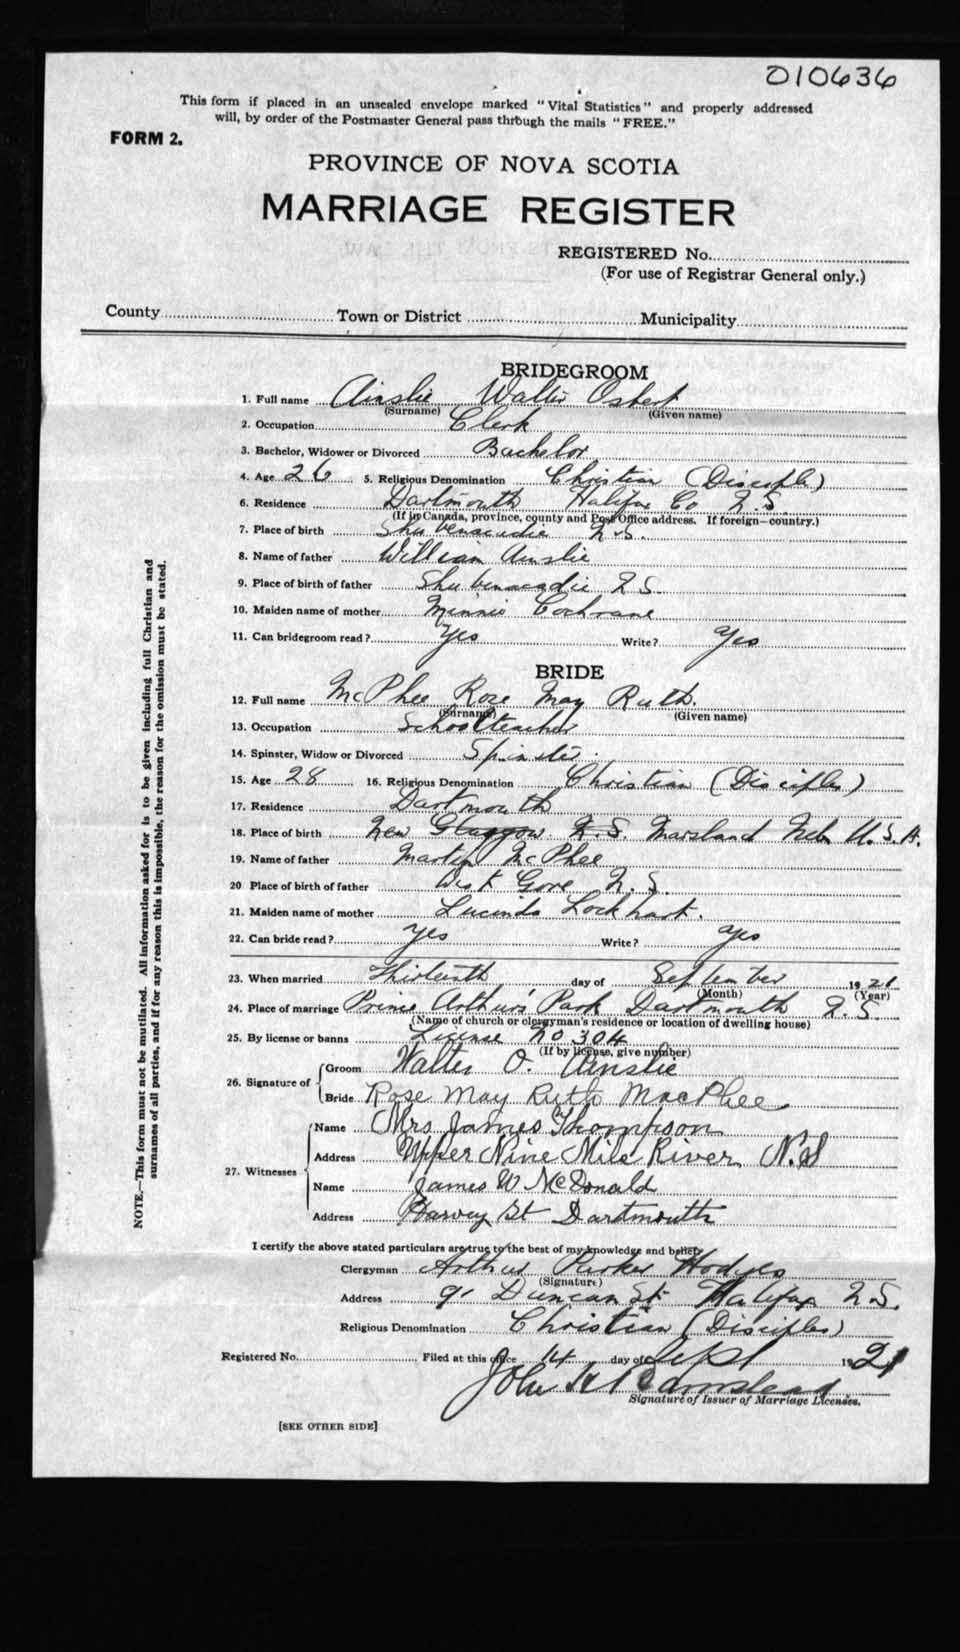 010636
This form if placed in an unsealed envelope marked "Vital Statistics" and properly addressed
will, by order of the Postmaster General pass through the mails "FREE."
FORM 2.
PROVINCE OF NOVA SCOTIA
MARRIAGE REGISTER
REGISTERED No.
(For use of Registrar General only.)
County Town or District Municipality
BRIDEGROOM
1. Full name Ainslie Walter Osbert
(Surname) (Given name)
2. Occupation Clerk
3. Bachelor, Widower or Divorced Bachelor
4. Age 26 5. Religious Denomination Christian (Disciple)
6. Residence Dartmouth Halifax Co N.S.
(If in Canada, province, county and Post Office address. If foreign—country.)
7. Place of birth Shubenacadie N.S.
8. Name of father William Ainslie
9. Place of birth of father Shubenacadie N.S.
10. Maiden name of mother Minnie Cochrane
11. Can bridegroom read? Yes Write? Yes
BRIDE
12. Full name McPhee Rose May Ruth.
(Surname) (Given name)
13. Occupation School teacher
14. Spinster, Widow or Divorced Spinster.
15. Age 28 16. Religious Denomination Christian (Disciples)
17. Residence Dartmouth
18. Place of birth New Glasgow. N.S. Marsland Neb. U.S.A.
19. Name of father Martin McPhee
20. Place of birth of father West Gore N.S.
21. Maiden name of mother Lucinda Lockhart.
22. Can bride read? Yes Write? Yes
23. When married Thirteenth day of September 1921
(Month) (Year)
24. Place of marriage Prince Arthur's Park Dartmouth N.S.
(Name of church or clergyman's residence or location of dwelling house)
25. By license or banns License No 304
(If by license, give number)
26. Signature of Groom Walter O. Ainslie
Bride Rose May Ruth MacPhee
27. Witnesses Name Mrs James Thompson
Address Upper Nine Mile River N.S
Name James W McDonald
Address Harvey St Dartmouth
I certify the above stated particulars are true to the best of my knowledge and belief.
Clergyman Arthur Parker Hodges
(Signature)
Address 91 Duncan St. Halifax N.S.
Religious Denomination Christian (Disciples)
Registered No. Filed at this office 14 day of Sept 1921
John H
Signature of Issuer of Marriage Licenses.
[SEE OTHER SIDE]
NOTE.—This form must not be mutilated. All information asked for is to be given including full Christian and
surnames of all parties, and if for any reason this is impossible, the reason for the omission must be stated.